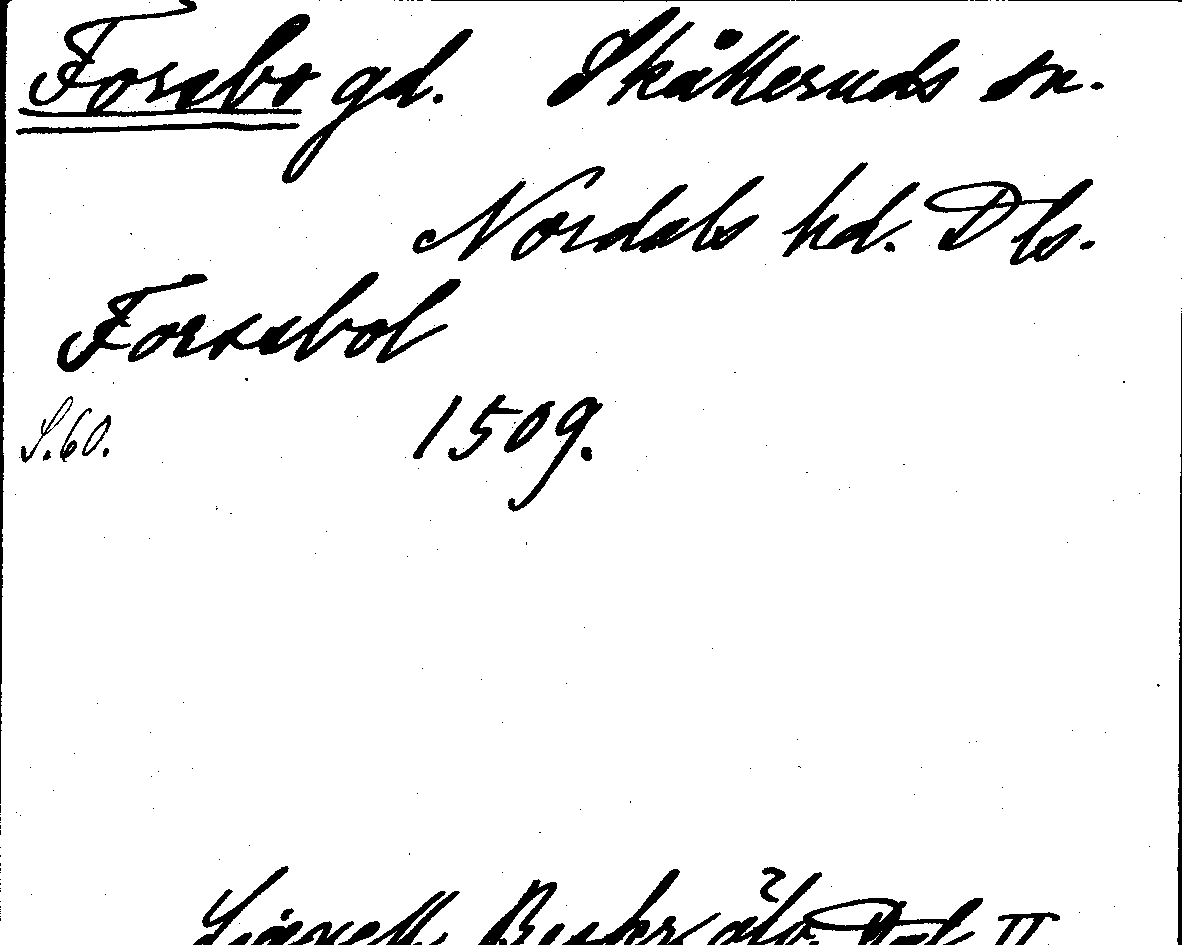 Forsbo gd. Skålleruds sn.
Nordals hd. Dls.
Forssbol
S.60. 1509.
Lignell, Beskr. öfv. Dal II